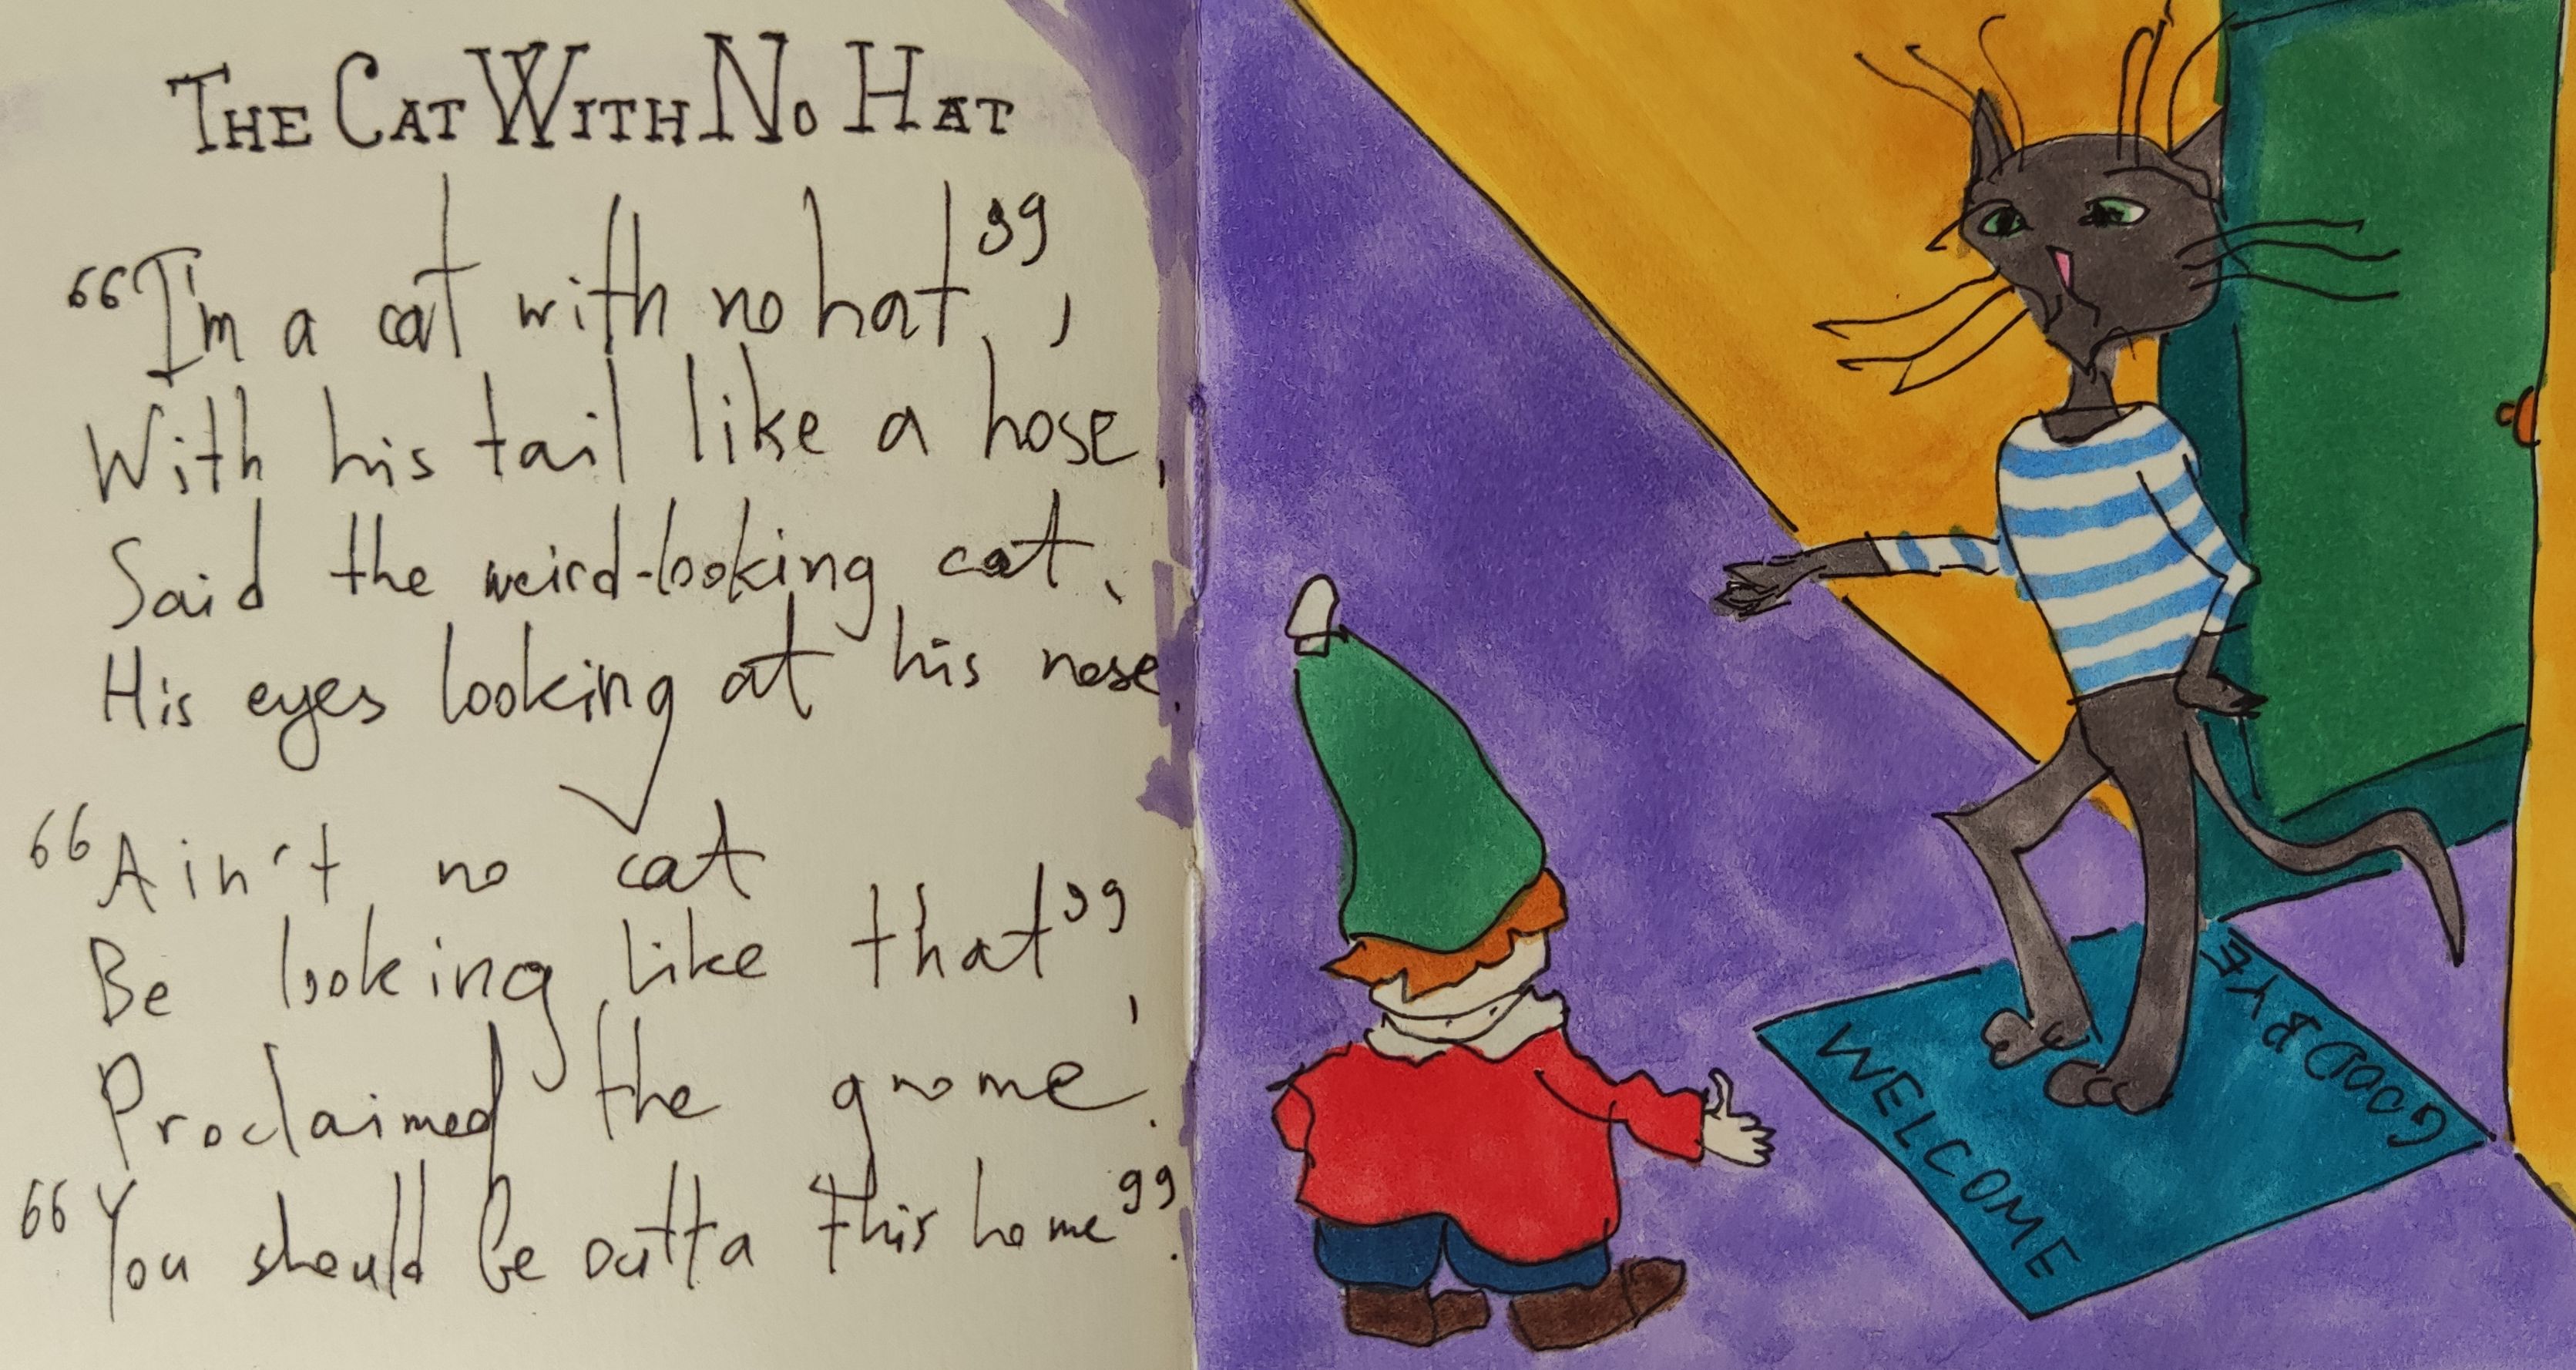 THE CAT WITH NO HAT
“I'm a cat with no hat”,
With his tail like a hose,
Said the weird-looking cat,
His eyes looking at his nose.
“Ain't no cat
Be looking like that”,
Proclaimed the gnome.
“You should be outta this home”.
WELCOME
GOODBYE